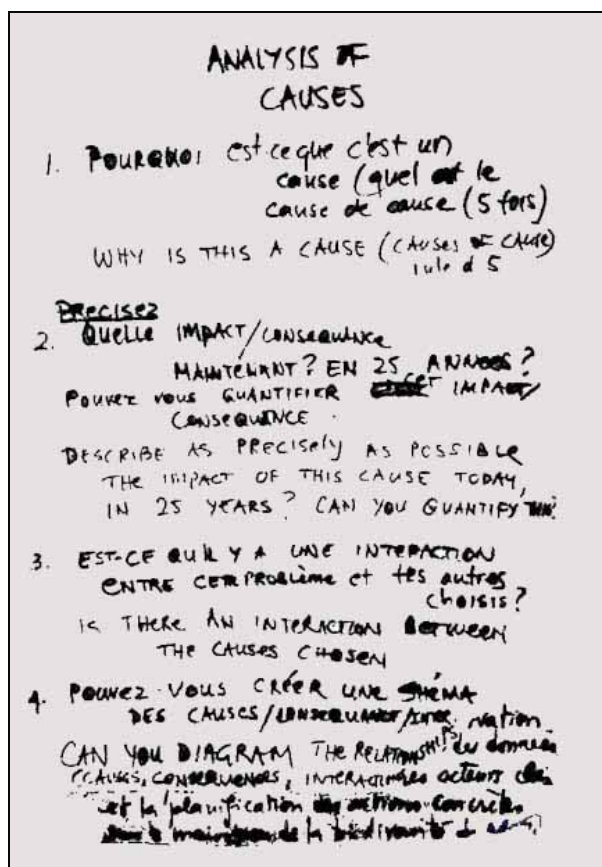 ANALYSIS OF
CAUSES
1. POURQUOI est-ce que c'est un
cause (quel est le
cause de cause (5 fois)
WHY IS THIS A CAUSE (CAUSES OF CAUSE)
rule of 5
PRECISEZ
2. QUELLE IMPACT/CONSEQUENCE
MAINTENANT? EN 25 ANNEES?
POUVEZ VOUS QUANTIFIER CET IMPACT/
CONSEQUENCE.
DESCRIBE AS PRECISELY AS POSSIBLE
THE IMPACT OF THIS CAUSE TODAY,
IN 25 YEARS? CAN YOU QUANTIFY
3. EST-CE QU'IL Y A UNE INTERACTION
ENTRE CET PROBLÈME et les autres
choisis?
IS THERE AN INTERACTION BETWEEN
THE CAUSES CHOSEN
4. POUVEZ-VOUS CRÉER UNE SHÉMA
DES CAUSES/CONSEQUANCE/INTER
CAN YOU DIAGRAM THE RELATIONSHIPS données
(CAUSES, CONSEQUENCES, acteurs
et la planification actions concrètes
de la